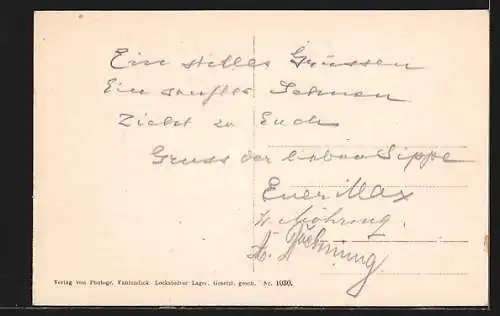 Ein stilles Grüssen
Ein sanftes Sehnen
Zieht zu Euch
Gruss der Sippe
Euer Max
Möhring.
Verlag von Photogr. Vahlendick Lockstedter Lager. Gesetzl. gesch. Nr. 1030.